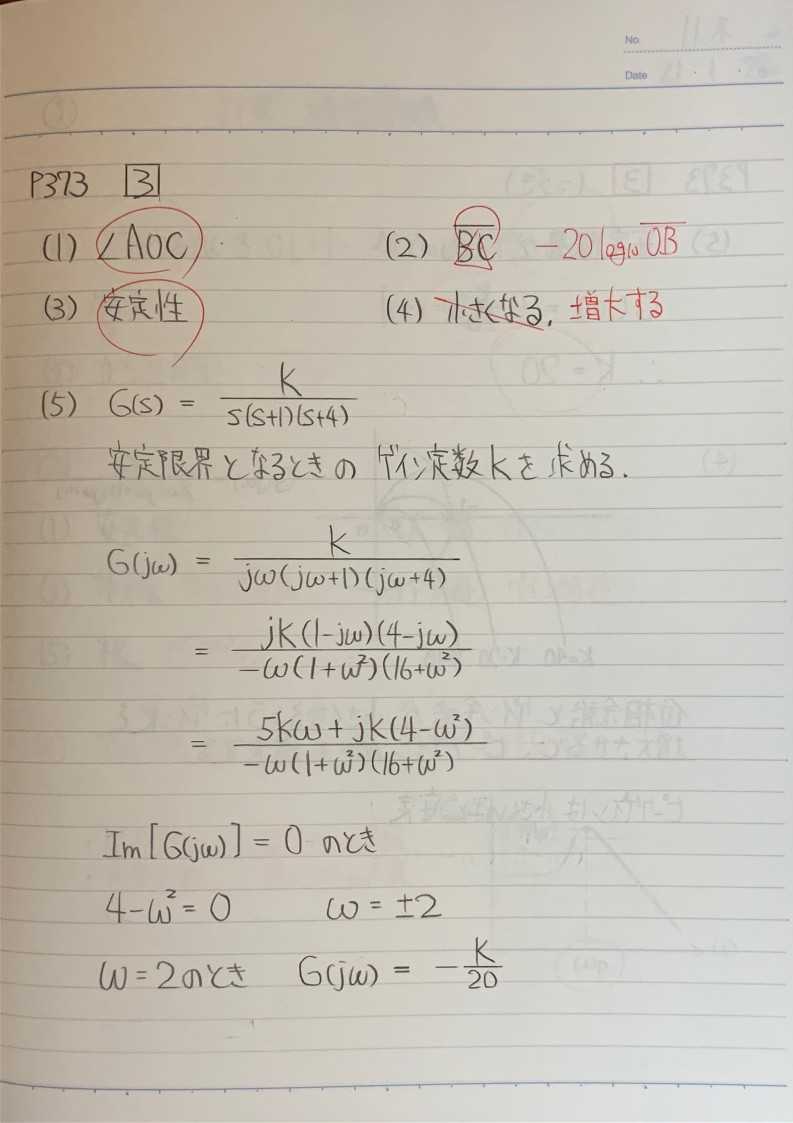 No.
Date
P373 3
(1) ∠AOC (2) BC −20 log₁₀ OB
(3) 安定性 (4) 小さくなる. 増大する
(5) G(s) = K / s(s+1)(s+4)
安定限界となるときの ゲイン定数Kを求める.
G(jω) = K / jω(jω+1)(jω+4)
= jK(1-jω)(4-jω) / -ω(1+ω²)(16+ω²)
= 5Kω + jK(4-ω²) / -ω(1+ω²)(16+ω²)
Im[G(jω)] = 0 のとき
4-ω² = 0 ω = ±2
ω = 2のとき G(jω) = - K/20